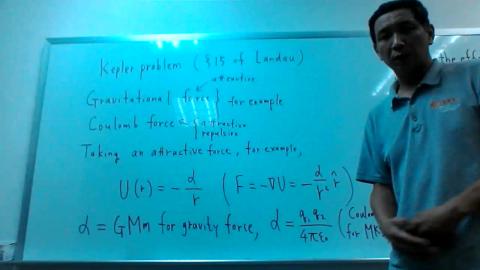 Kepler problem (§15 of Landau)
attractive
Gravitational force } for example
Coulomb force { attractive
repulsive
Taking an attractive force, for example,
U(r) = - α/r ( F = -∇U = - α/r² r̂ )
α = GMm for gravity force, α = q₁q₂/4πε₀ (Coulo
for MK
the eff